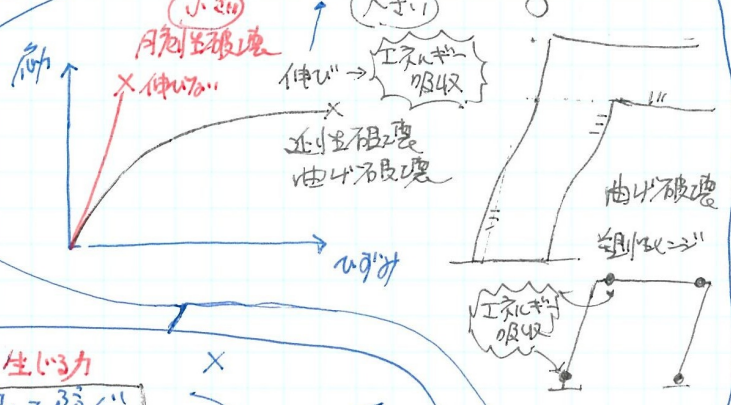 小さい
大きい
脆性破壊
応力
伸びない
伸び→
エネルギー
吸収
延性破壊
曲げ破壊
ひずみ
曲げ破壊
塑性ヒンジ
エネルギー
吸収
生じる力